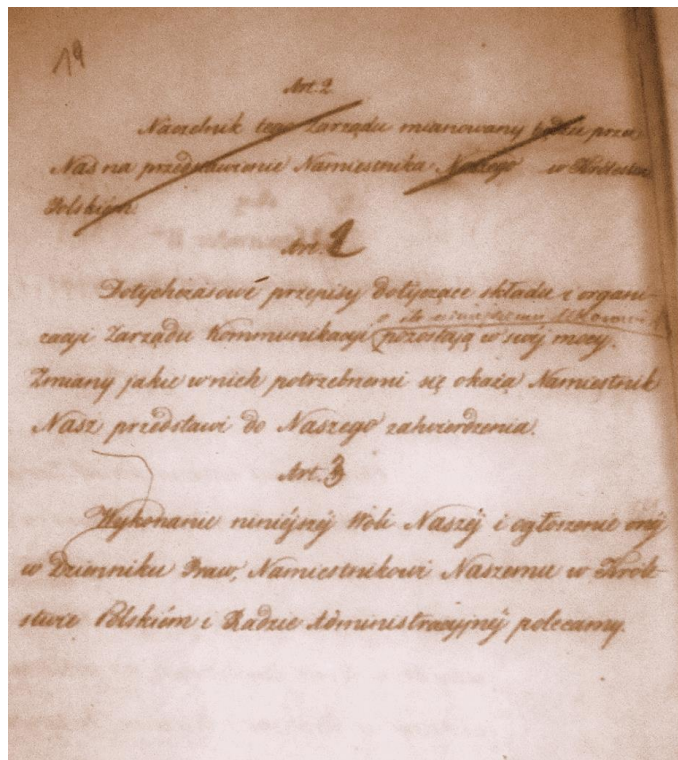 19
Art. 2
Naczelnik tego Zarządu mianowany będzie przez
Nas na przedstawienie Namiestnika Naszego w Królestwie
Polskiém.
Art. 2
Dotychczasowé przepisy dotyczące składu i organi-
o ile niniejszemu Ukazowi
zacyi Zarządu Kommunikacyi pozostają w swéj mocy.
Zmiany jakie w nich potrzebnemi się okażą Namiestnik
Nasz przedstawi do Naszego zatwierdzenia.
Art. 3
Wykonanie niniejszéj Woli Naszéj i ogłoszenie onéj
w Dzienniku Praw, Namiestnikowi Naszemu w Króle-
stwie Polskiém i Radzie Administracyjnéj polecamy.